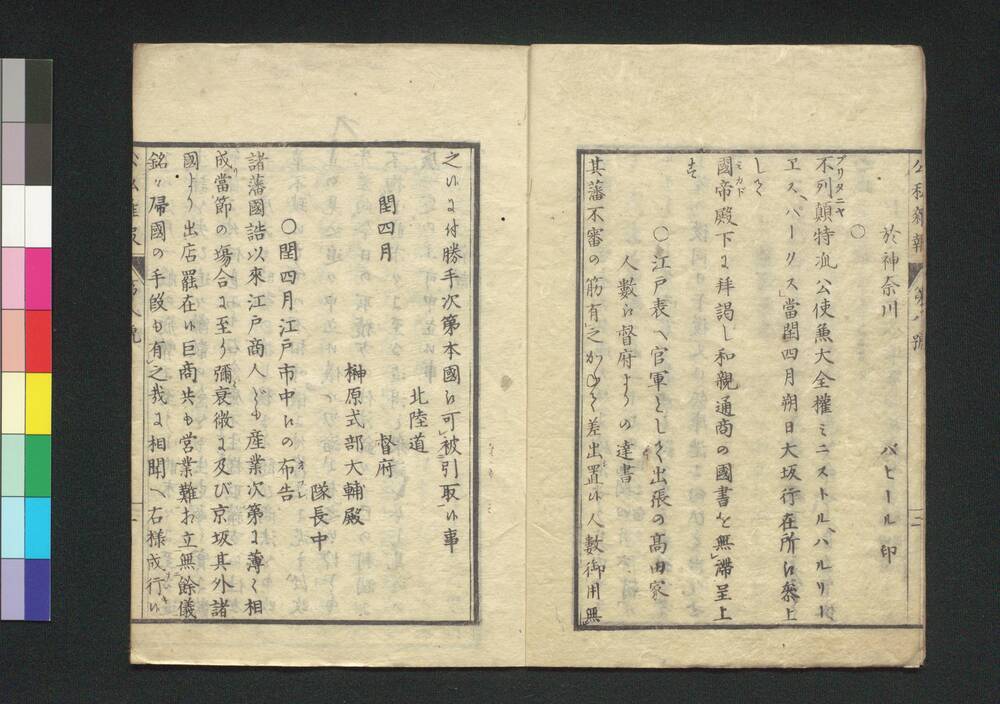 公私雜報
第八號
於神奈川
バヒール 印
○
不列顛特派公使兼大全權ミニストル、ハルリー
ブリタニヤ
ヱス、パークス」當閏四月朔日大坂行在所に參上
して
國帝殿下に拜謁し和親通商の國書を無滯呈上
ミカド
す
○江戸表へ官軍として出張の高田家
人數に督府よりの達書
其藩不審の筋有之かねて差出置い人數御用無
之いに付勝手次第本國に可被引取い事
閏四月
北陸道
督府
榊原式部大輔殿
隊長中
○閏四月江戸市中にの布告
諸藩國詰以來江戸商人ども産業次第に薄く相
成當節の塲合に至り彌衰微に及び京坂其外諸
國より出店罷在い巨商共も営業難相立無餘儀
銘々歸國の手段も有之哉に相聞へ右樣成行い